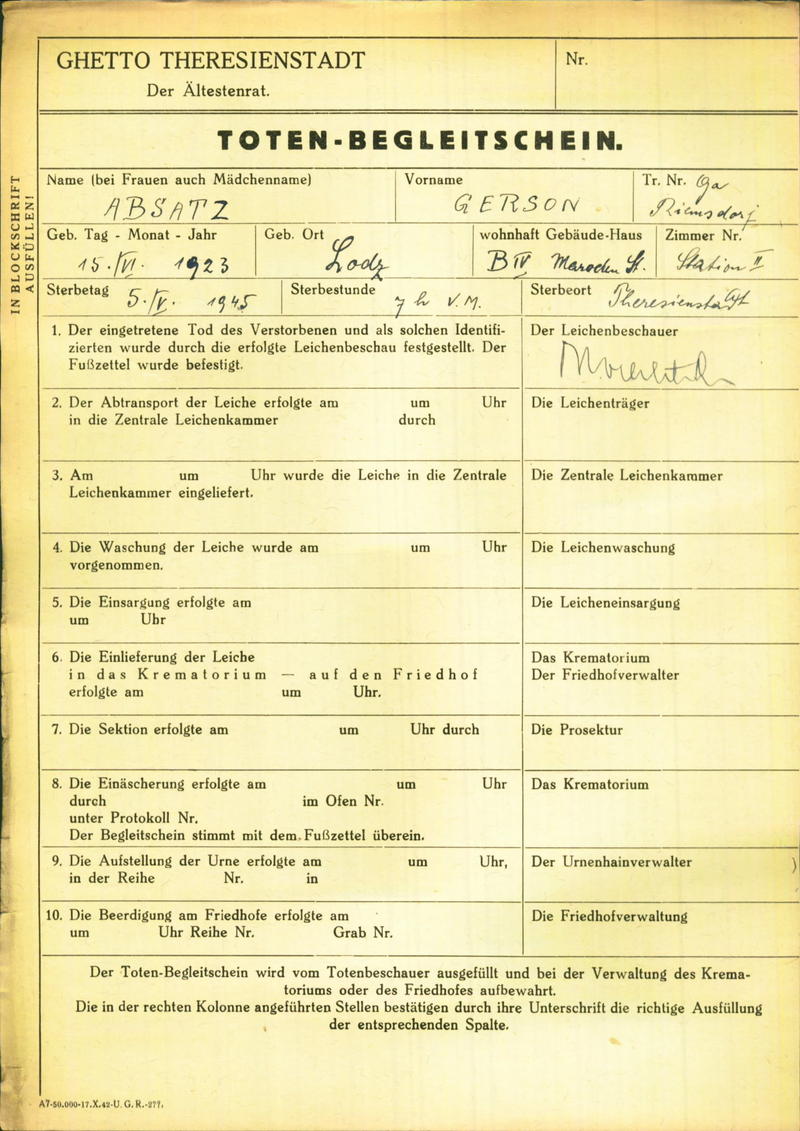 GHETTO THERESIENSTADT
Der Ältestenrat.
Nr.
TOTEN-BEGLEITSCHEIN.
IN BLOCKSCHRIFT
AUSFÜLLEN!
Name (bei Frauen auch Mädchenname)
ABSATZ
Vorname
GERSON
Tr. Nr.
Geb. Tag - Monat - Jahr
15./VI. 1923
Geb. Ort
Lodz
wohnhaft Gebäude-Haus
B IV
Zimmer Nr.
Station II
Sterbetag
1945
Sterbestunde
7 h V.M.
Sterbeort
Theresienstadt
1. Der eingetretene Tod des Verstorbenen und als solchen Identifi-
zierten wurde durch die erfolgte Leichenbeschau festgestellt. Der
Fußzettel wurde befestigt.
Der Leichenbeschauer
2. Der Abtransport der Leiche erfolgte am um Uhr
in die Zentrale Leichenkammer durch
Die Leichenträger
3. Am um Uhr wurde die Leiche in die Zentrale
Leichenkammer eingeliefert.
Die Zentrale Leichenkammer
4. Die Waschung der Leiche wurde am um Uhr
vorgenommen.
Die Leichenwaschung
5. Die Einsargung erfolgte am
um Uhr
Die Leicheneinsargung
6. Die Einlieferung der Leiche
in das Krematorium — auf den Friedhof
erfolgte am um Uhr.
Das Krematorium
Der Friedhofverwalter
7. Die Sektion erfolgte am um Uhr durch
Die Prosektur
8. Die Einäscherung erfolgte am um Uhr
durch im Ofen Nr.
unter Protokoll Nr.
Der Begleitschein stimmt mit dem Fußzettel überein.
Das Krematorium
9. Die Aufstellung der Urne erfolgte am um Uhr,
in der Reihe Nr. in
Der Urnenhainverwalter
10. Die Beerdigung am Friedhofe erfolgte am
um Uhr Reihe Nr. Grab Nr.
Die Friedhofverwaltung
Der Toten-Begleitschein wird vom Totenbeschauer ausgefüllt und bei der Verwaltung des Krema-
toriums oder des Friedhofes aufbewahrt.
Die in der rechten Kolonne angeführten Stellen bestätigen durch ihre Unterschrift die richtige Ausfüllung
der entsprechenden Spalte.
A7-50.000-17.X.42-U. G. R.-277.